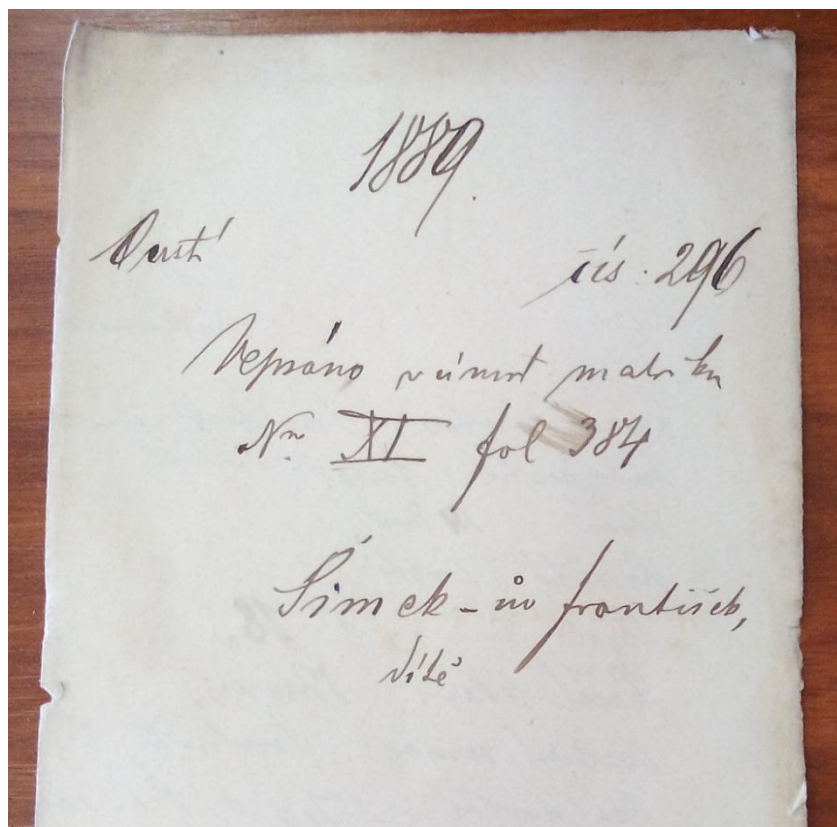 1889.
Oustí
čís. 296
Vepsáno v úmrt matriku
Nro. XI fol 384
Šimek-ův František,
dítě